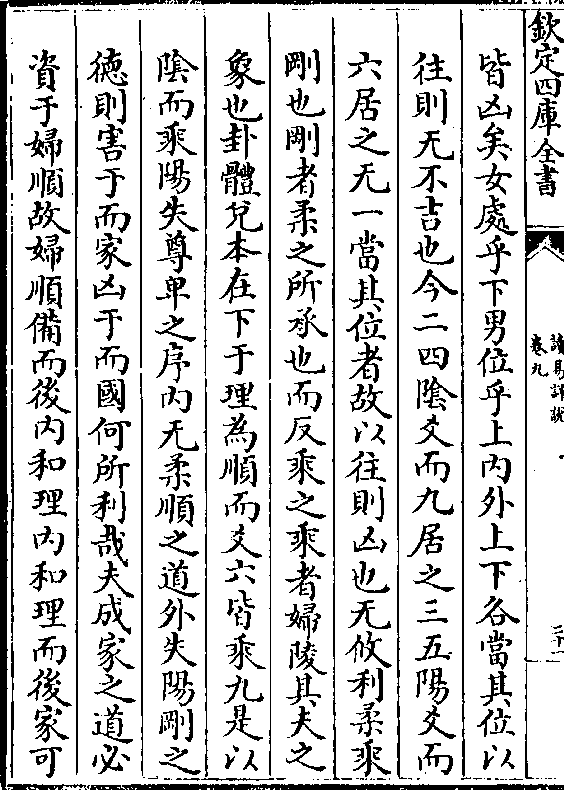 欽定四庫全書
讀易詳說
卷九
二十一
皆凶矣女處乎下男位乎上内外上下各當其位以
往則无不吉也今二四陰爻而九居之三五陽爻而
六居之无一當其位者故以往則凶也无攸利柔乘
剛也剛者柔之所承也而反乘之乘者婦陵其夫之
象也卦體兌本在下于理為順而爻六皆乘九是以
隂而乘陽失尊卑之序内无柔順之道外失陽剛之
徳則害于而家凶于而國何所利哉夫成家之道必
資于婦順故婦順備而後内和理内和理而後家可